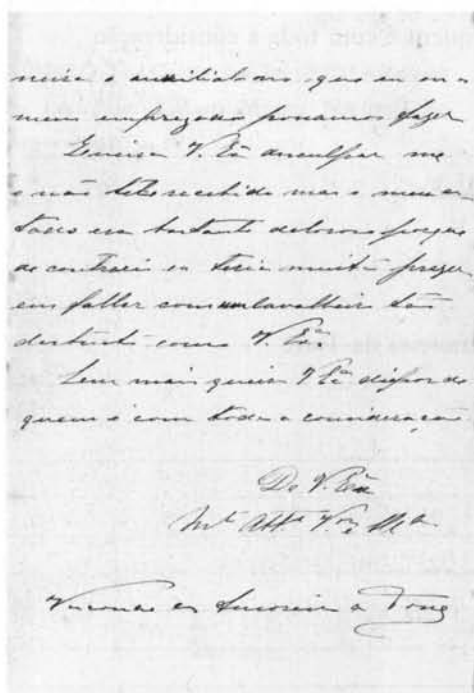 neira é auxilial-o no que eu com o
meu empregado possamos fazer
Queira V. Exª desculpar me
o não tel-o recebido mas o meu es
tado era bastante doloroso porque
ao contrario eu teria muito prazer
em fallar com um cavalheiro tão
distincto como V. Exª
Sem mais queira V Exª dispor de
quem é com toda a consideração
De V. Exª
Mtº Attº Vor